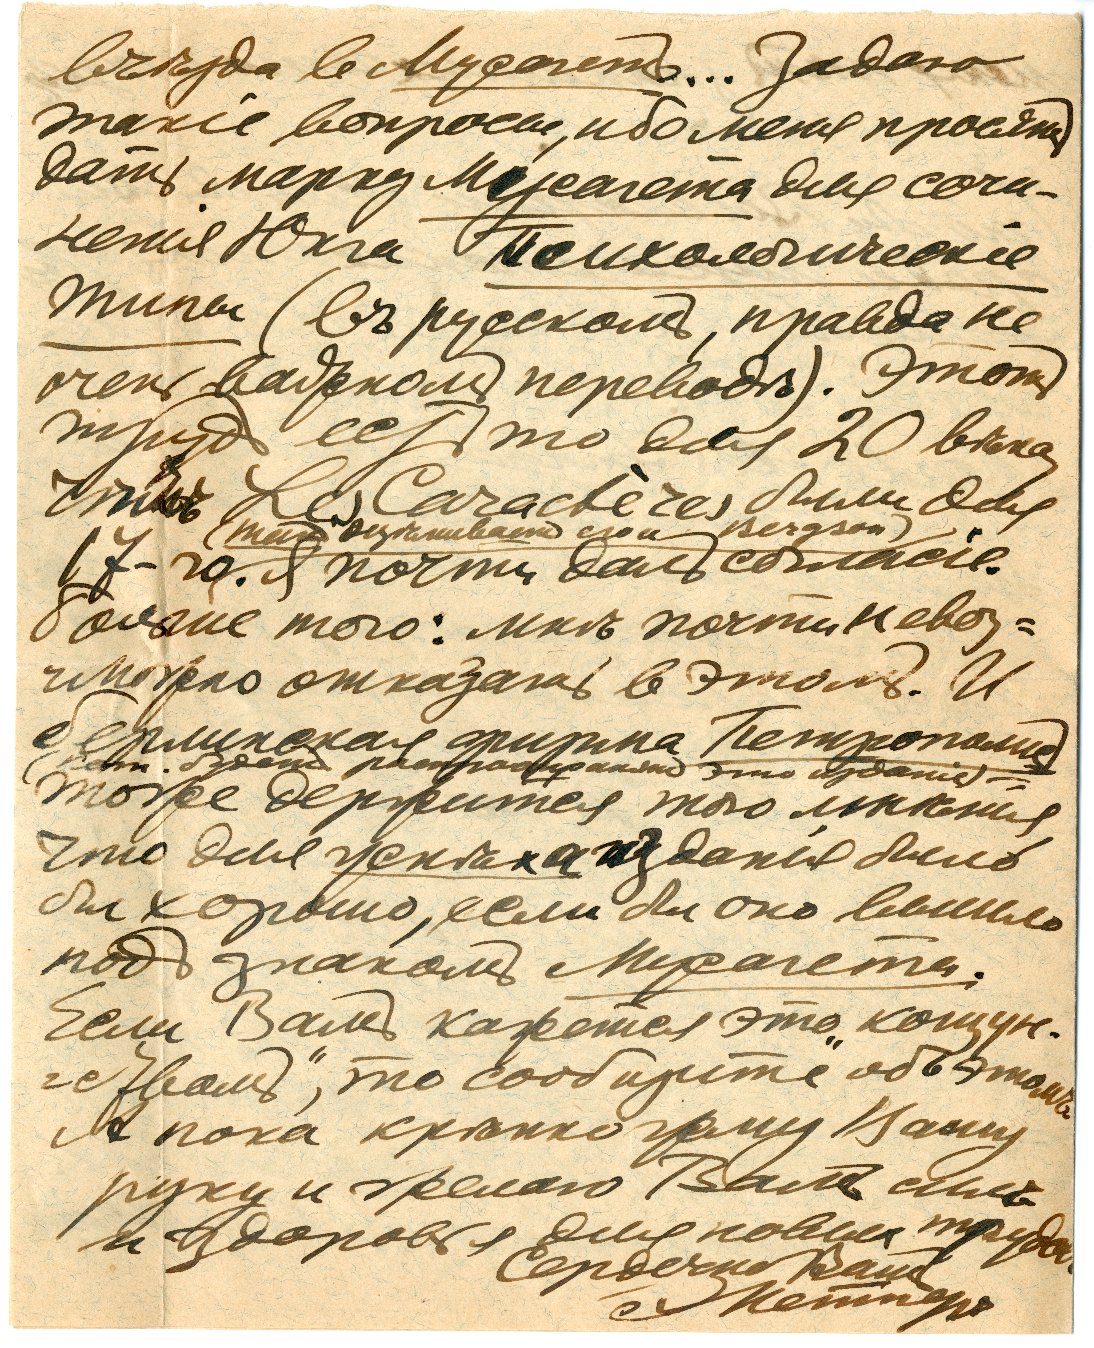 въѣзда в Мусагетъ... Задаю
такіе вопросы, ибо меня просятъ
дать марку Мусагета для сочи-
ненія Юнга Психологическіе
типы (въ русскомъ, правда не
очень важномъ переводѣ). Этотъ
трудъ есть то для 20 вѣка
чѣмъ Les Caractères были для
(такъ оцѣниваетъ Bergson)
17-го. Я почти далъ согласіе.
Больше того: мнѣ почти невоз=
можно отказать в этомъ. И
берлинская фирма Петрополисъ
(кот. будетъ распространять это изданіе)=
тоже держится того мнѣнія,
что для успѣха изданія было
бы хорошо, если бы оно вышло
подъ знакомъ Мусагета.
Если Вамъ кажется это „кощун-
ствомъ", то сообщите объ этомъ
А пока крѣпко жму Вашу
руку и желаю Вамъ силъ
и здоровья для новыхъ трудовъ.
Сердечно Вашъ
Э Метнеръ